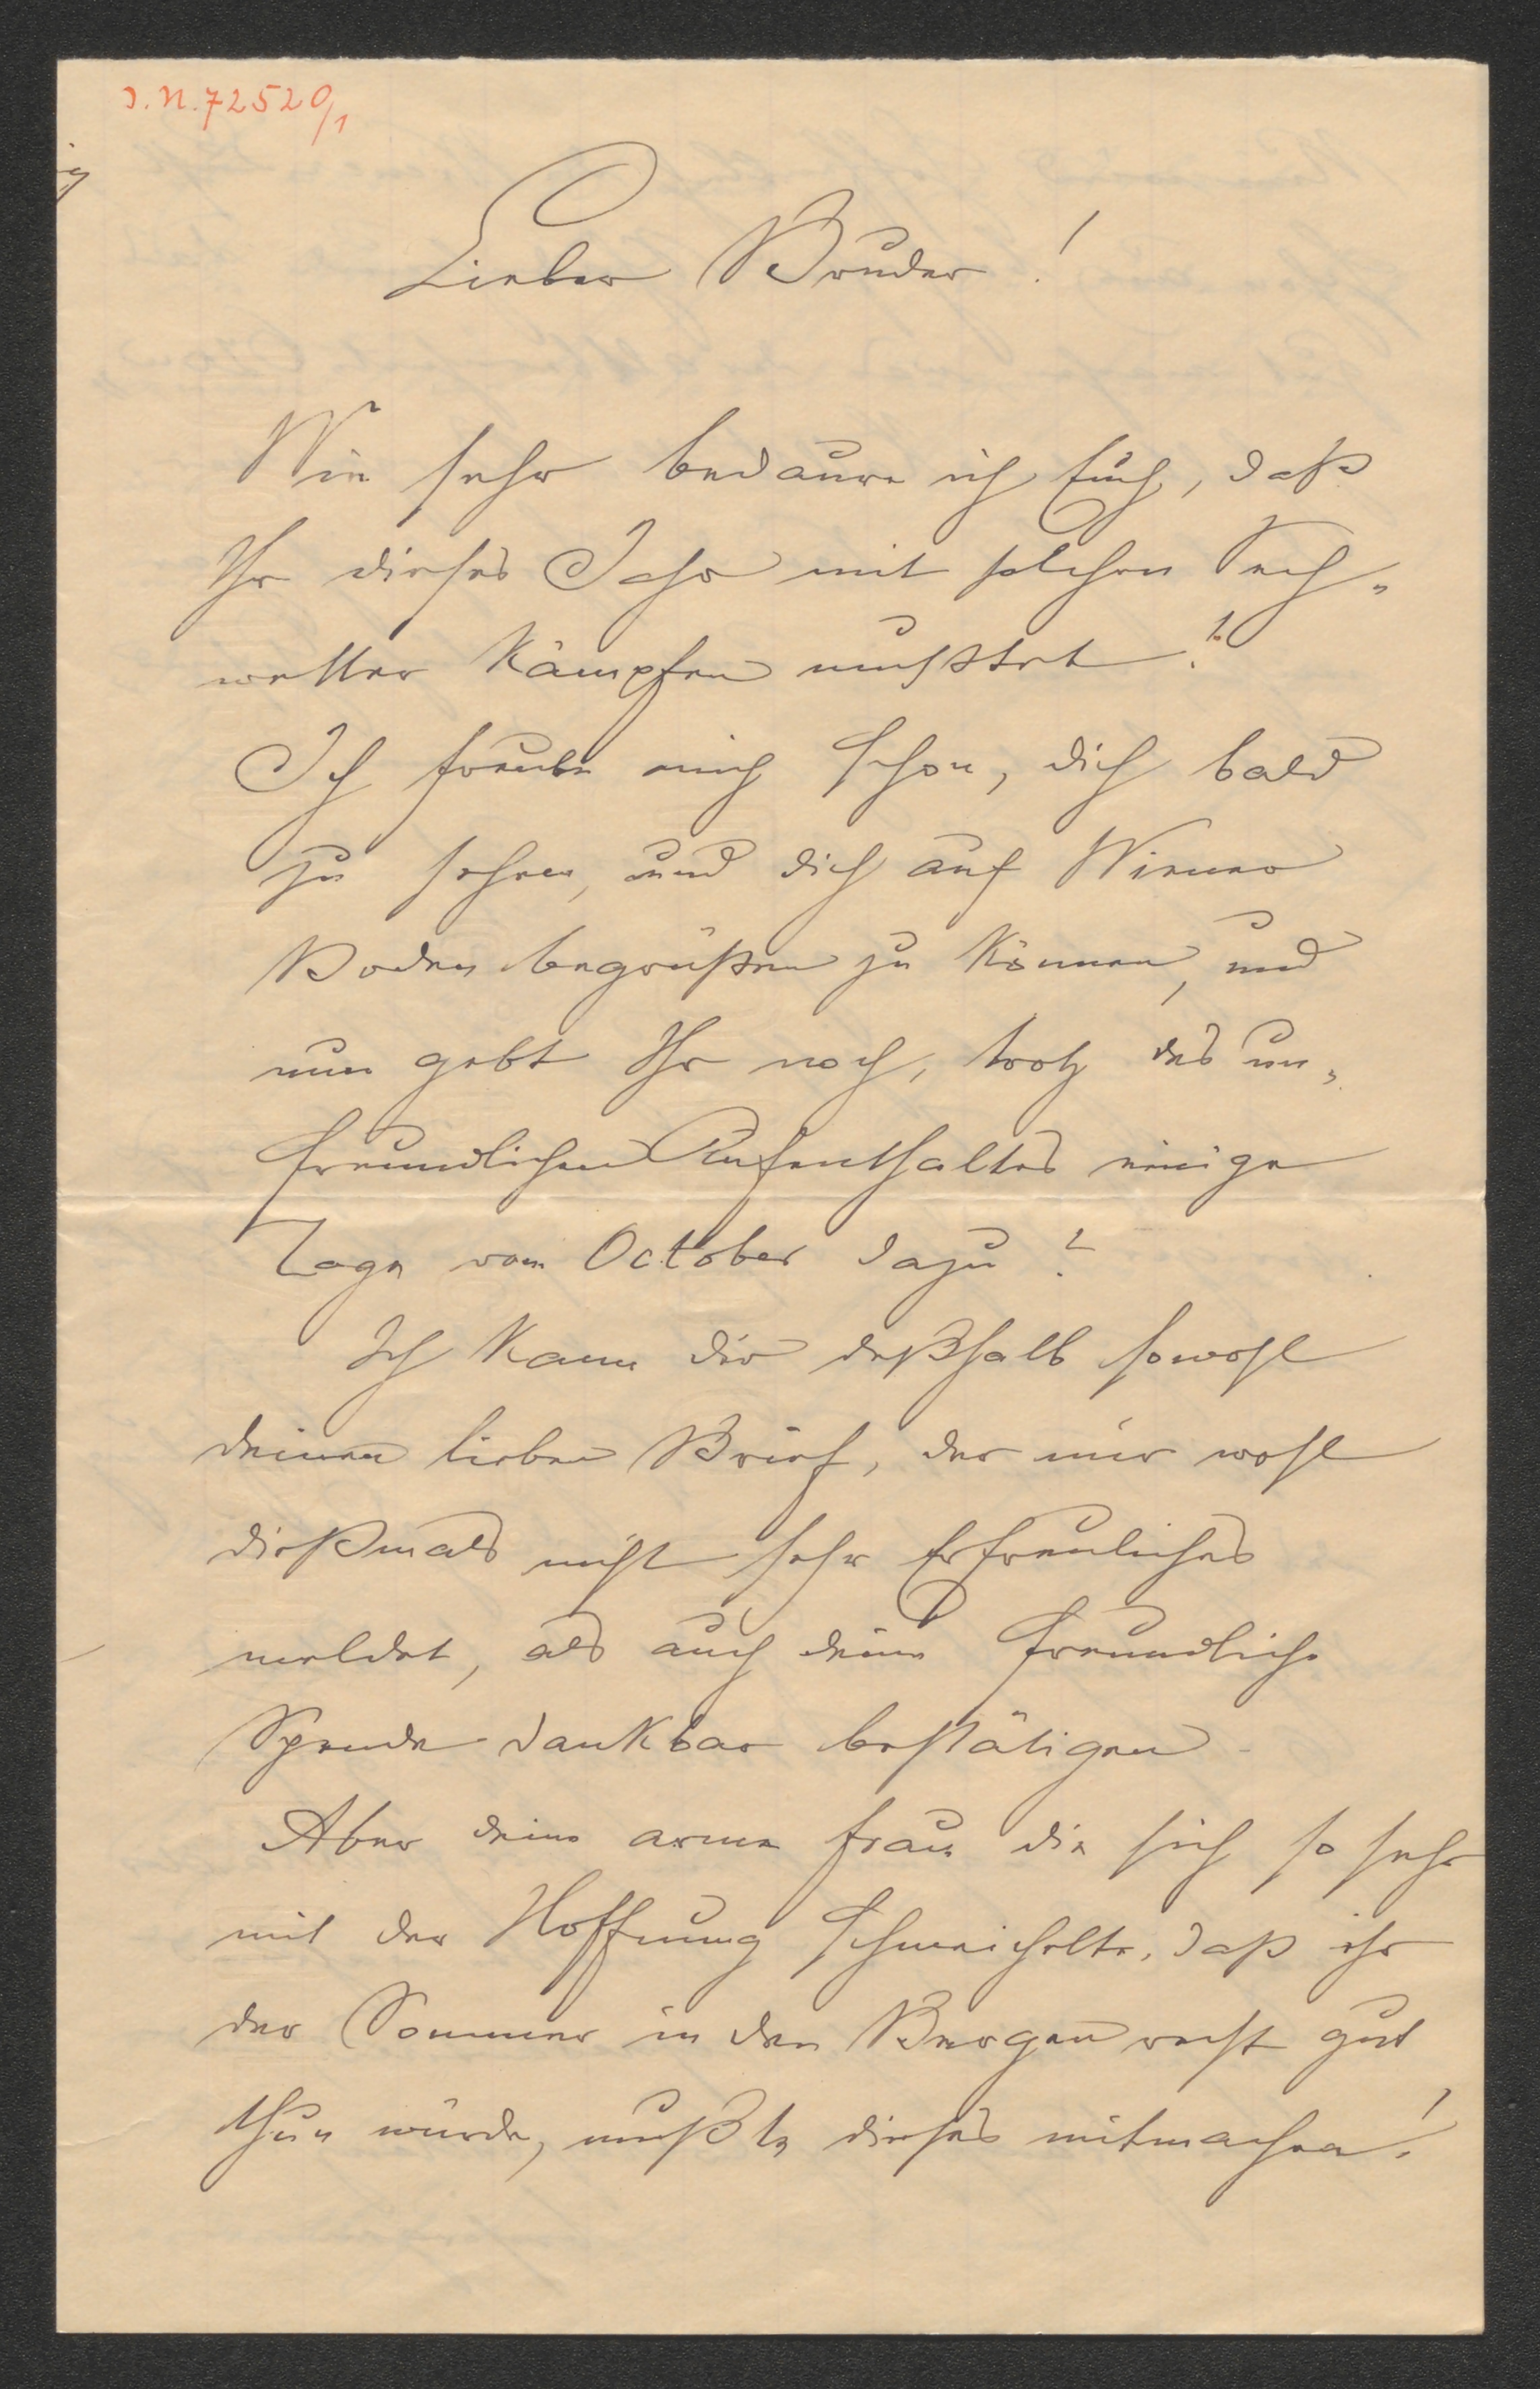 J.N. 72520/1
Lieber Bruder!
Wie sehr bedaure ich Euch, daß
Ihr dieses Jahr mit solchen Pech-
wetter kämpfen mußtet!
Ich freute mich schon, dich bald
zu sehen, und dich auf Wiener
Boden begrüßen zu können, und
nun gebt Ihr noch, trotz des un-
freundlichen Aufenthaltes einige
Tage vom October dazu?
Ich kann dir deßhalb sowohl
deinen lieben Brief, der mir wohl
dießmals nicht sehr Erfreuliches
meldet, als auch deine freundliche
Spende dankbar bestätigen.
Aber deine arme Frau die sich so sehr
mit der Hoffnung schmeichelte, daß ihr
der Sommer in den Bergen recht gut
thun würde, mußte dieses mitmachen!